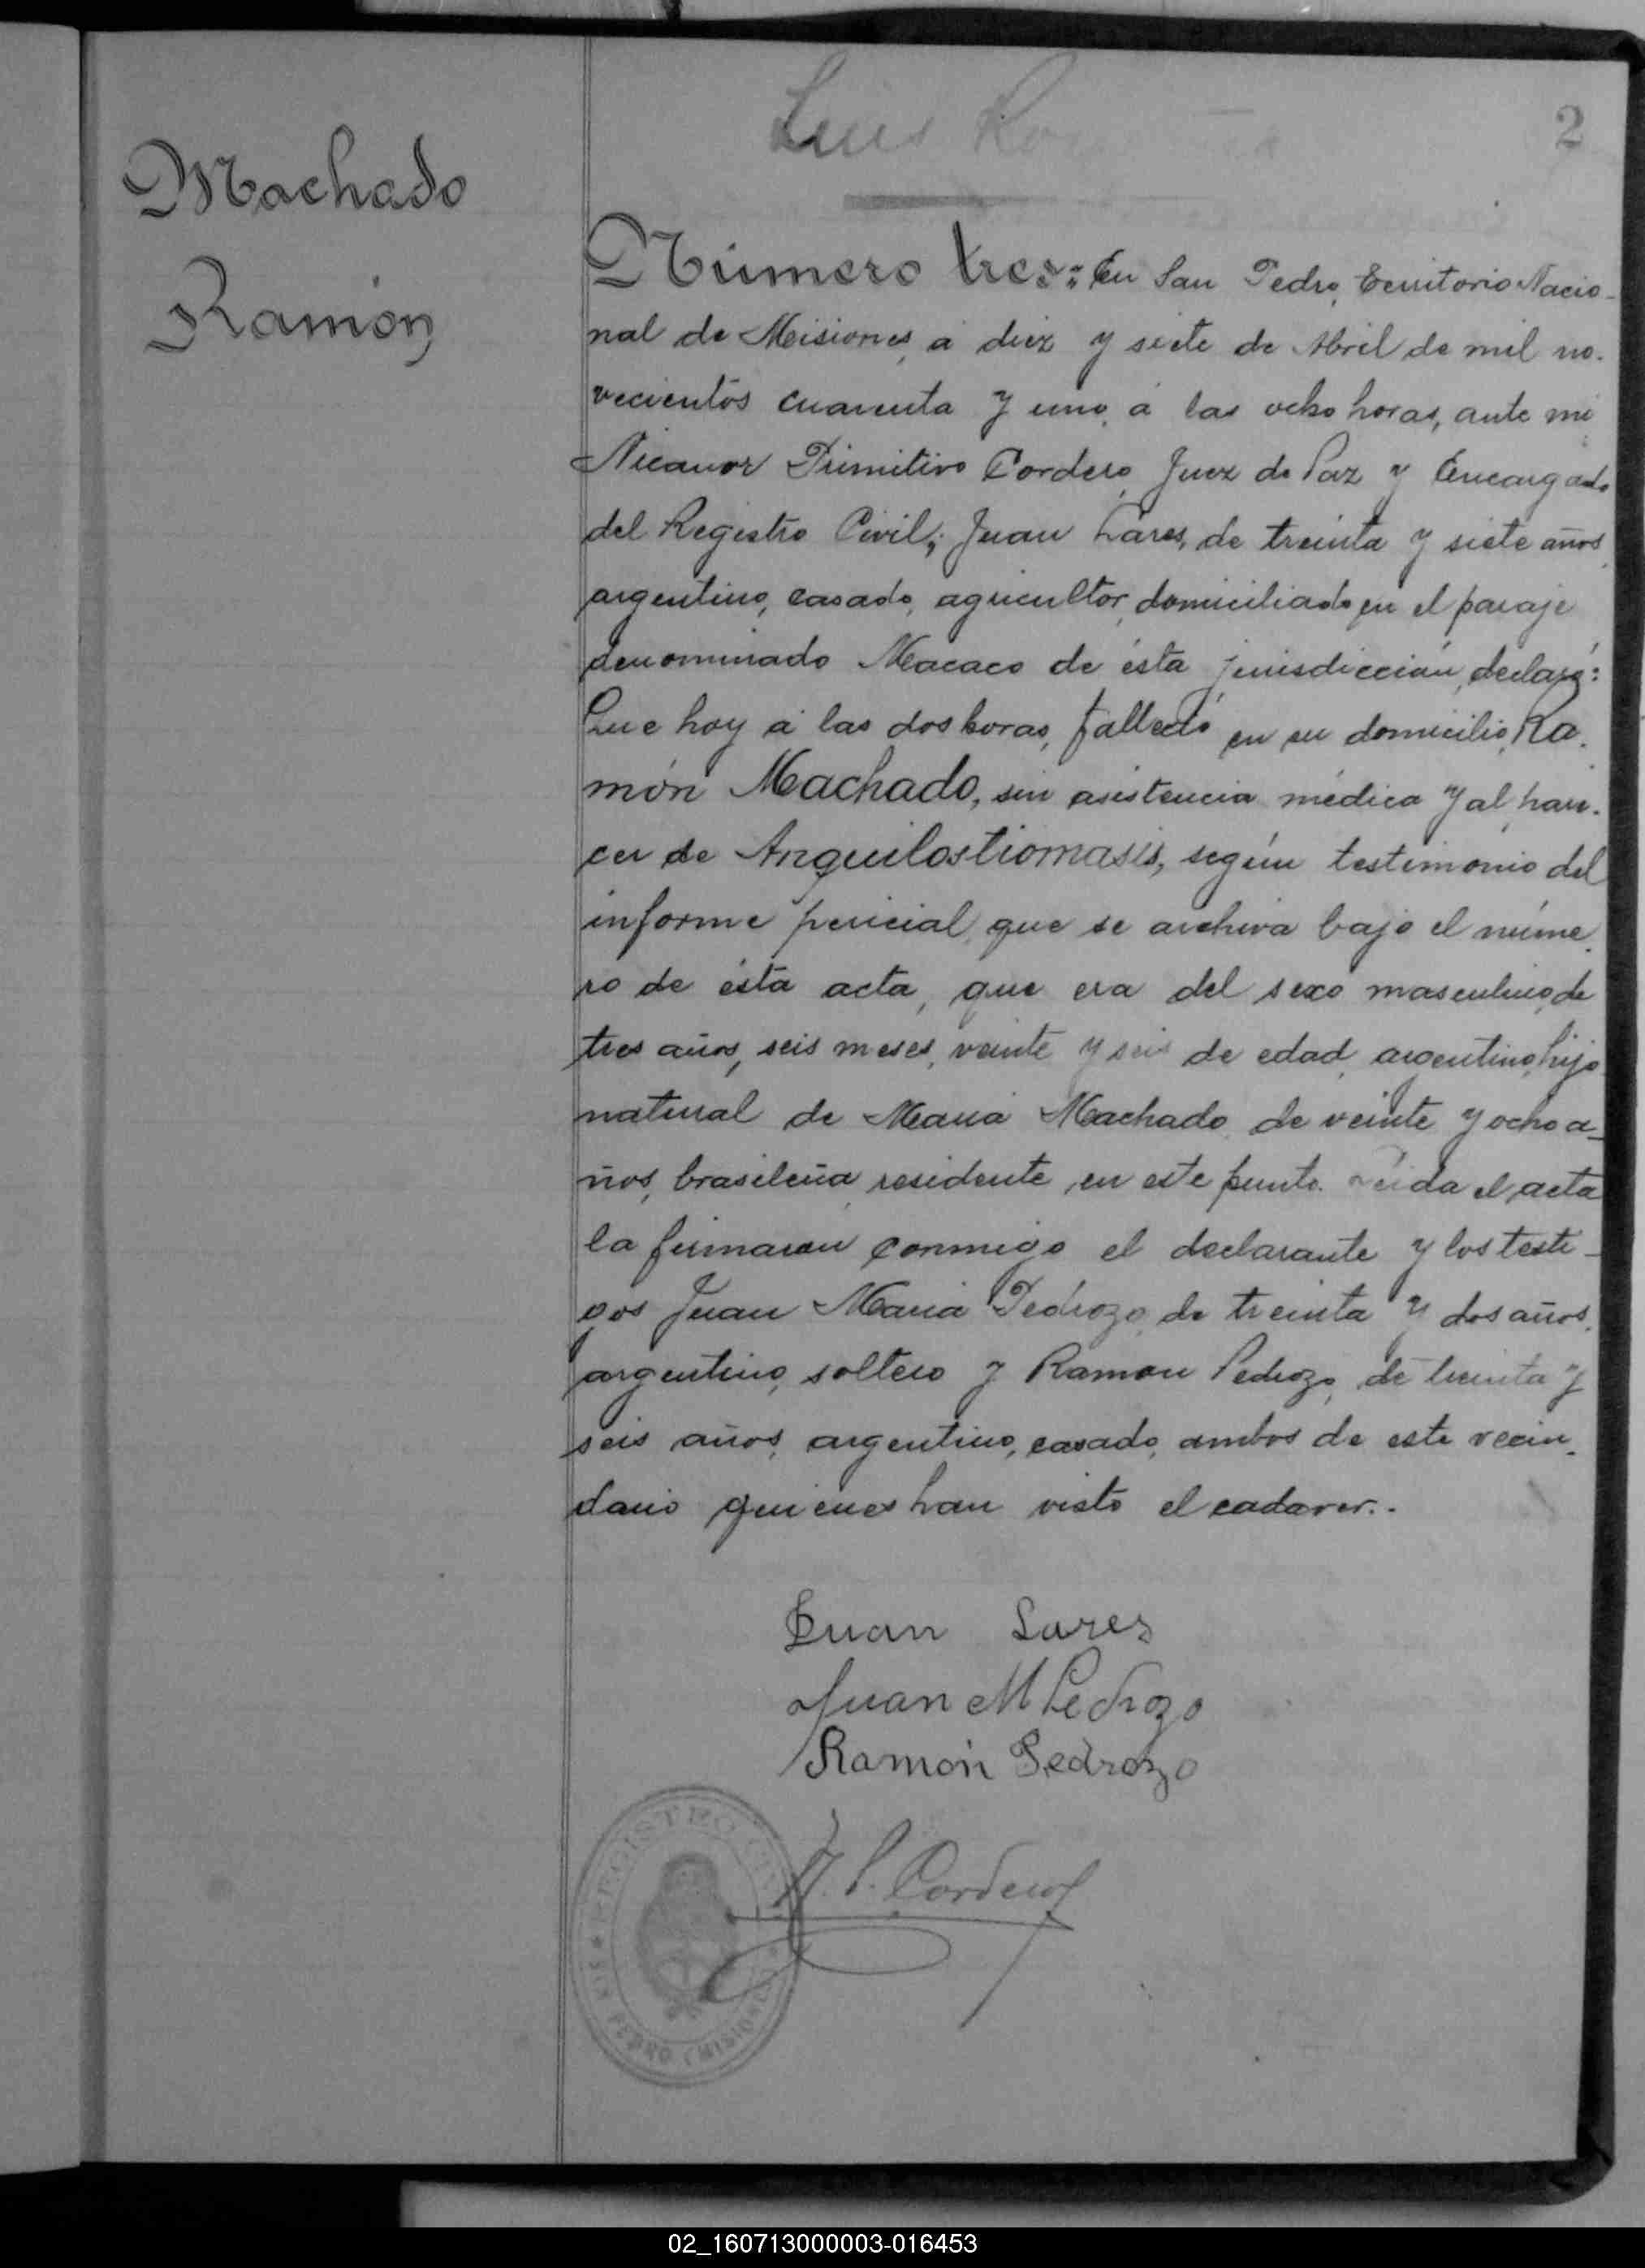 Luis
2
Machado
Ramón
Número tres: En San Pedro, Territorio Nacio-
nal de Misiones, a diez y siete de Abril de mil no-
vecientos cuarenta y uno, a las ocho horas, ante mi
Nicanor Primitivo Cordero, Juez de Paz y Encargado
del Registro Civil; Juan Lares, de treinta y siete años,
argentino, casado, agricultor, domiciliado en el paraje
denominado Macaco de ésta jurisdicción, declaró:
Que hoy a las dos horas, falleció en su domicilio, Ra-
món Machado, sin asistencia médica y al
cer de Anquilostiomasis, según testimonio del
informe pericial, que se archiva bajo el núme-
ro de ésta acta, que era del sexo masculino, de
tres años, seis meses, veinte y seis de edad, argentino, hijo
natural de Maria Machado, de veinte y ocho a-
ños, brasileña, residente en este punto. Leida el acta
la firmaron conmigo el declarante y los testi-
gos Juan Maria Pedrozo, de treinta y dos años,
argentino, soltero y Ramon Pedrozo, de treinta y
seis años, argentino, casado, ambos de este vecin-
dario quienes han visto el cadaver.-
Juan Lares
Juan M Pedrozo
Ramón Pedrozo
N. P. Cordero
REGISTRO
SAN PEDRO (MISIONES)
02_160713000003-016453